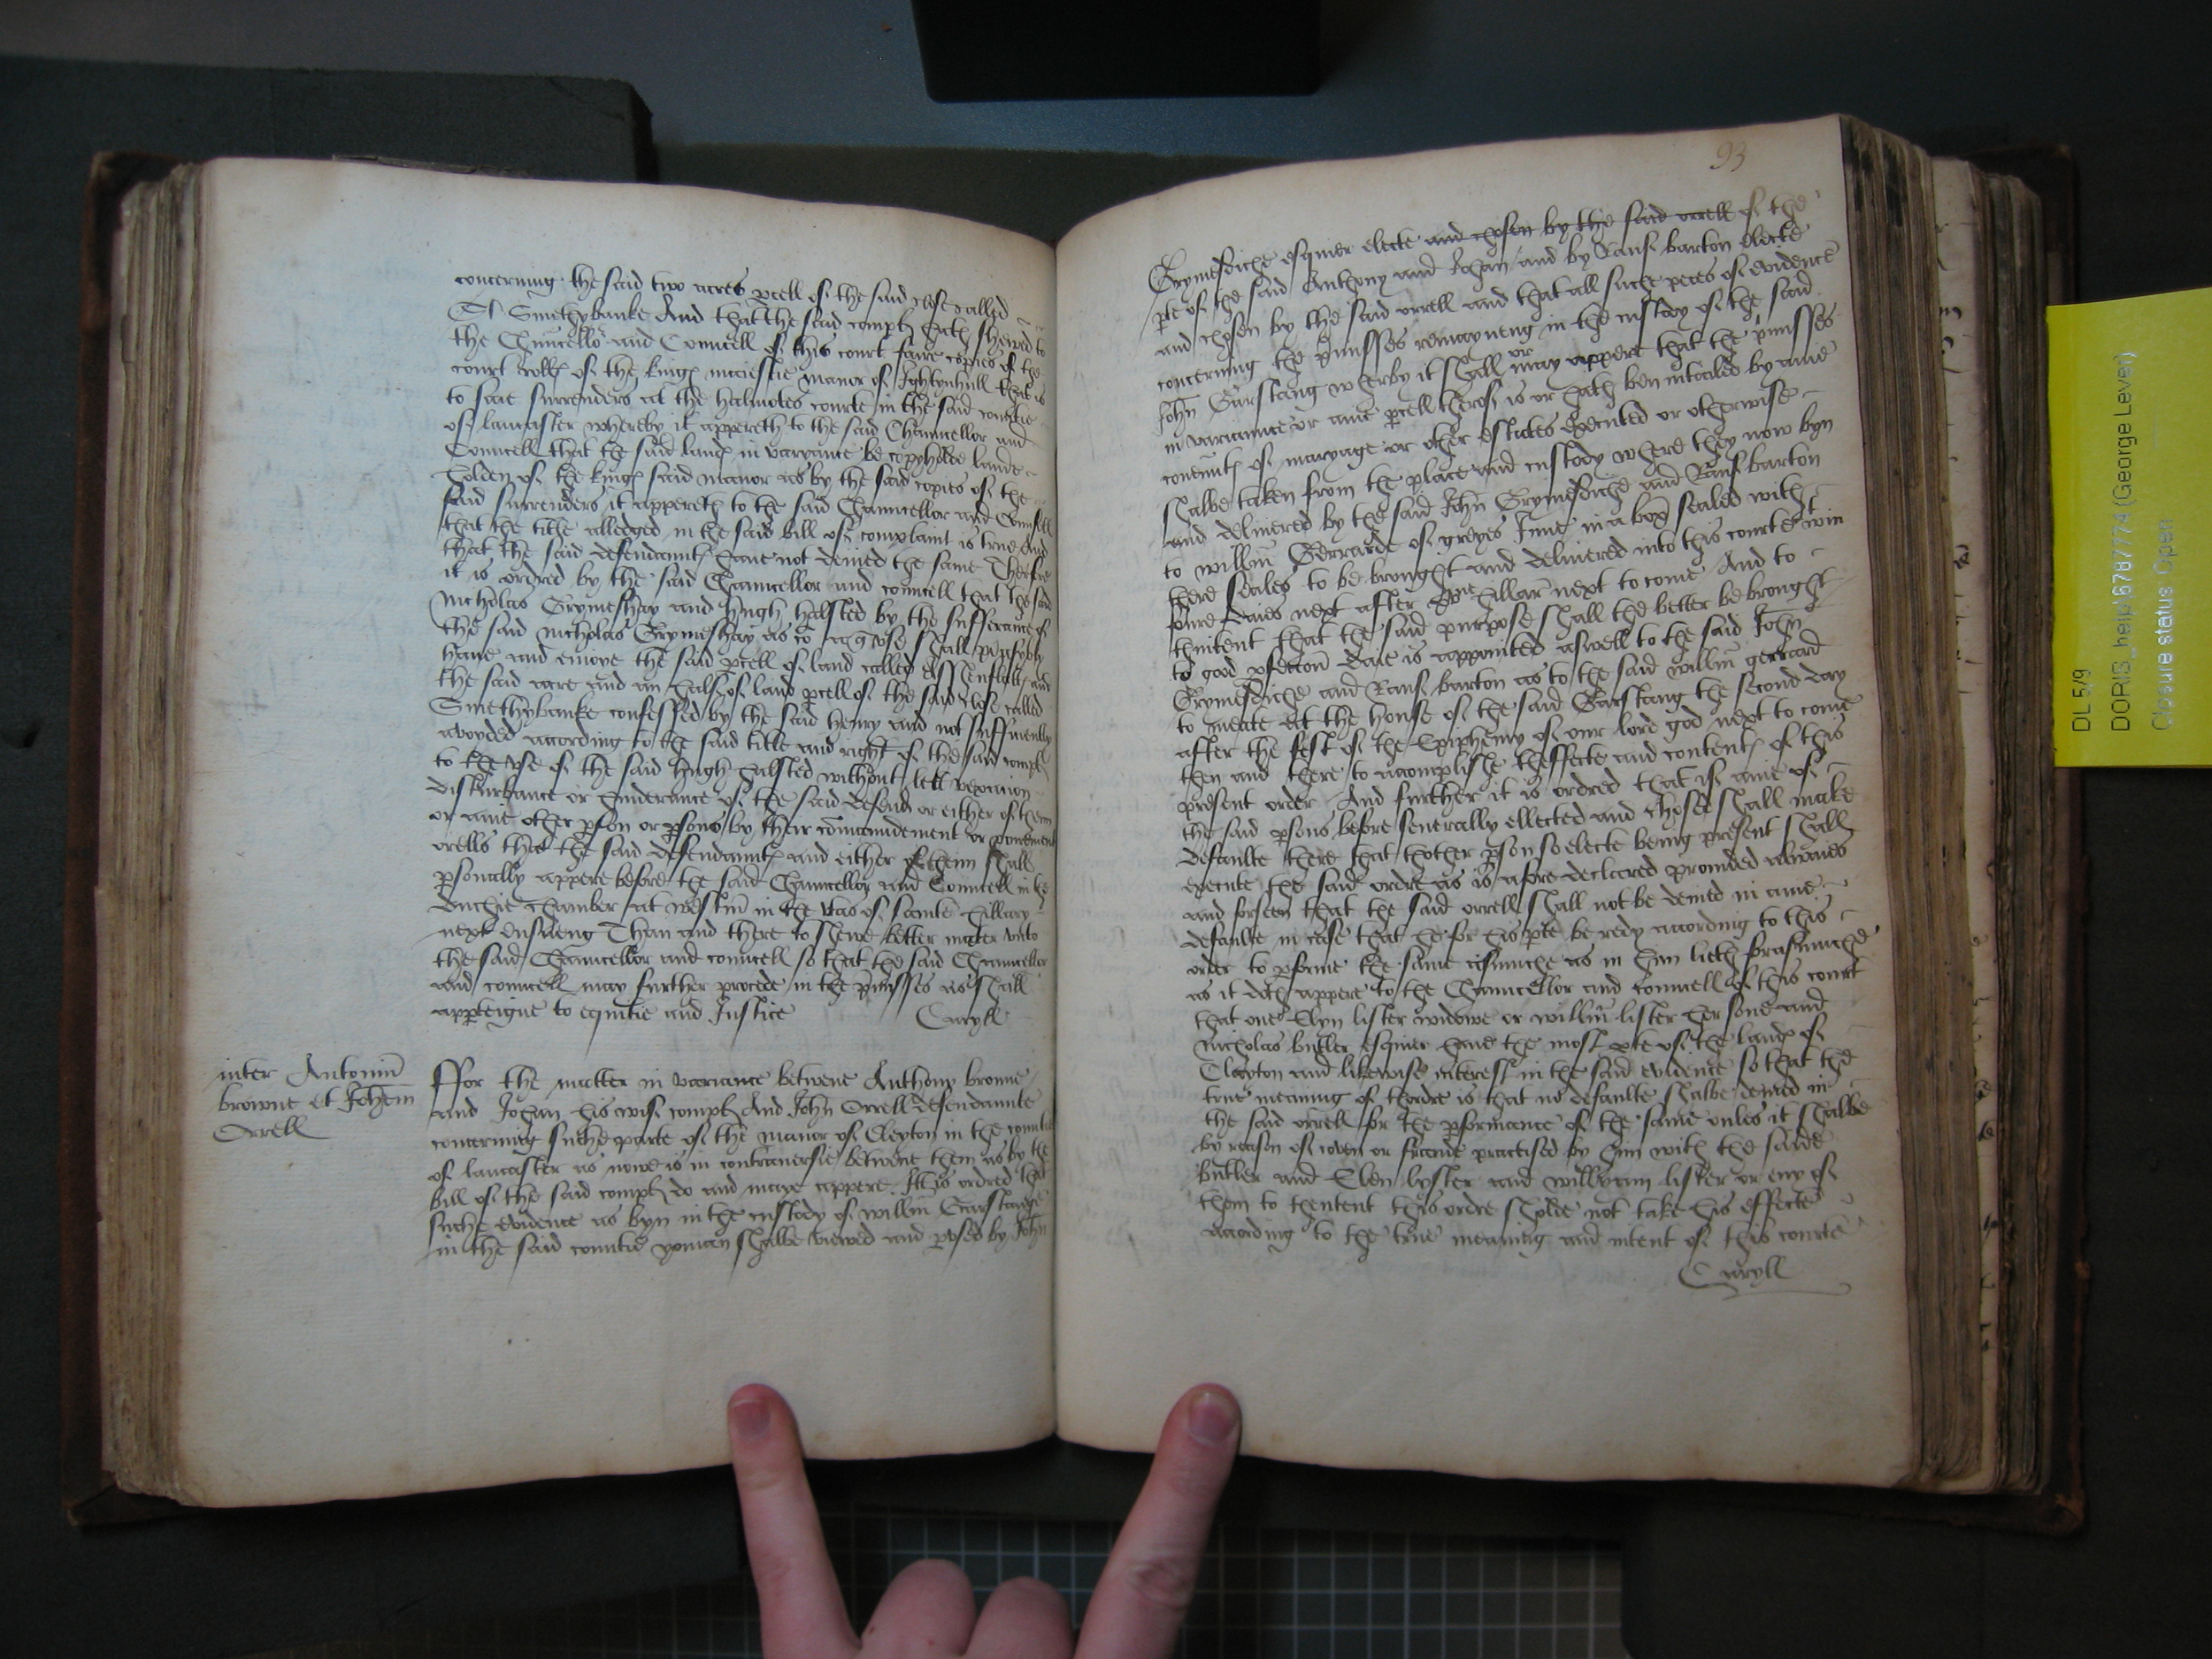 concerning the said two acres pcell of the said close called
Smethybanke And that the said complt hath shewed to
the Chauncello and Councell of this court faire copies of the
court Rolles of the kings maiestie manor of Ightynhull that is
to saie surrenders at the halmotes courte in the said countie
of lancaster whereby it appereth to the said Chauncellor and
Councell that the said lands in varyance be copyholde lande
holden of the kings said manor as by the said copies of the
said surrenders it appereth to the said Chauncellor and Councell
that the title alledged in the said bill of complaint is true And
that the said defendaunts haue not denied the same Therfore
it is ordred by the said Chauncellor and councell that the said
Nicholas Grymeshay and hugh halsted by the sufferance of
the said Nicholas Grymeshay as to vse shall
haue and enioye the said pcell of land called and
the said acre and an halfe of land pcell of the said close called
Smethybanke confessed by the said henry and not suffitiently
avoyded according to the said title and right of the said complt
to the vse of the said hugh halsted without lett vexacion
disturbance or hinderance of the said defend or either of them
or anie other pson or psons by their comaundement or
orells that the said defendaunts and either of theim shall
psonally appere before the said Chauncellor and Councell in the
duchie chamber at westm in the vtas of saincte hillary
next ensueng Than and there to shewe better matter vnto
the said Chauncellor and councell so that the said Chauncellor
and councell may further procede in the pmisses as shall
apperteigne to equitie and Justice
Caryll
inter Antoniu
browne et Johem
Orrell
ffor the matter in variance betwene Anthony browne
and Johan his wif complt And John Orrell defendaunte
concerning suche parte of the manor of Cleyton in the countie
of lancaster as nowe is in contrauersie betwene them as by the
bill of the said complt do and maye appere. It is ordred that
suche evidence as byn in the custody of willm Garstange
in the said countie yoman shalbe viewed and pvsed by John
93
Grymesdiche esquier electe and chosen by the said orrell of the
pte of the said Anthony and Johan and by Rauf barton electe
and chosen by the said orrell and that all suche peces of evidence
concerning the pmisses remayneng in the custody of the said
John Garstang wherby it shall or may appere that the pmisses
in variaunce or anie pcell therof is or hath ben intailed by anie
covenntes of maryage or other estates executed or otherwise
shalbe taken from the place and custody where they now byn
and delivered by the said John Grymesdiche and Rauf barton
to willm Gerrarde of greyes Inne in a box sealed with
there seales to be brought and delivered into this courte win
foure daies next after hillari next to come And to
thintent that the said purpose shall the better be brought
to good pfection daie is appointed aswell to the said John
Grymesdiche and Rauf barton as to the said willm gerrard
to meate at the house of the said Garstang the second day
after the fest of the Epiphemy of our lord god next to come
then and there to accomplishe theffecte and contents of this
present order And further it is ordred that if anie of
the said psons before seuerally ellected and chosed shall make
defaulte there that thother pson so electe being present shall
execute the said ordre as is afore declared provided alwaies
and forseen that the said orrell shall not be denied in anie
defaulte in case that he for his pte be redy according to this
order to pforme the same asmuche as in him lieth forasmuche
as it doth appere to the Chauncellor and councell of this court
that one Elyn lister widowe or willm lister her sone and
Nicholas butler esquier haue the most pte of the lands of
Clayton and likewise interest in the said evidence so that the
true meaning of thordre is that no defaulte shalbe demed in
the said orrell for the pformance of the same vnles it shalbe
by reason of coven or fraude practised by him with the saide
butler and Elen lyster and willyam lister or eny of
them to thentent this ordre shulde not take his effecte
according to the true meaning and intent of this courte
Caryll
DL 5/9
DORIS_help/6787774 (George Lever)
Closure status: Open